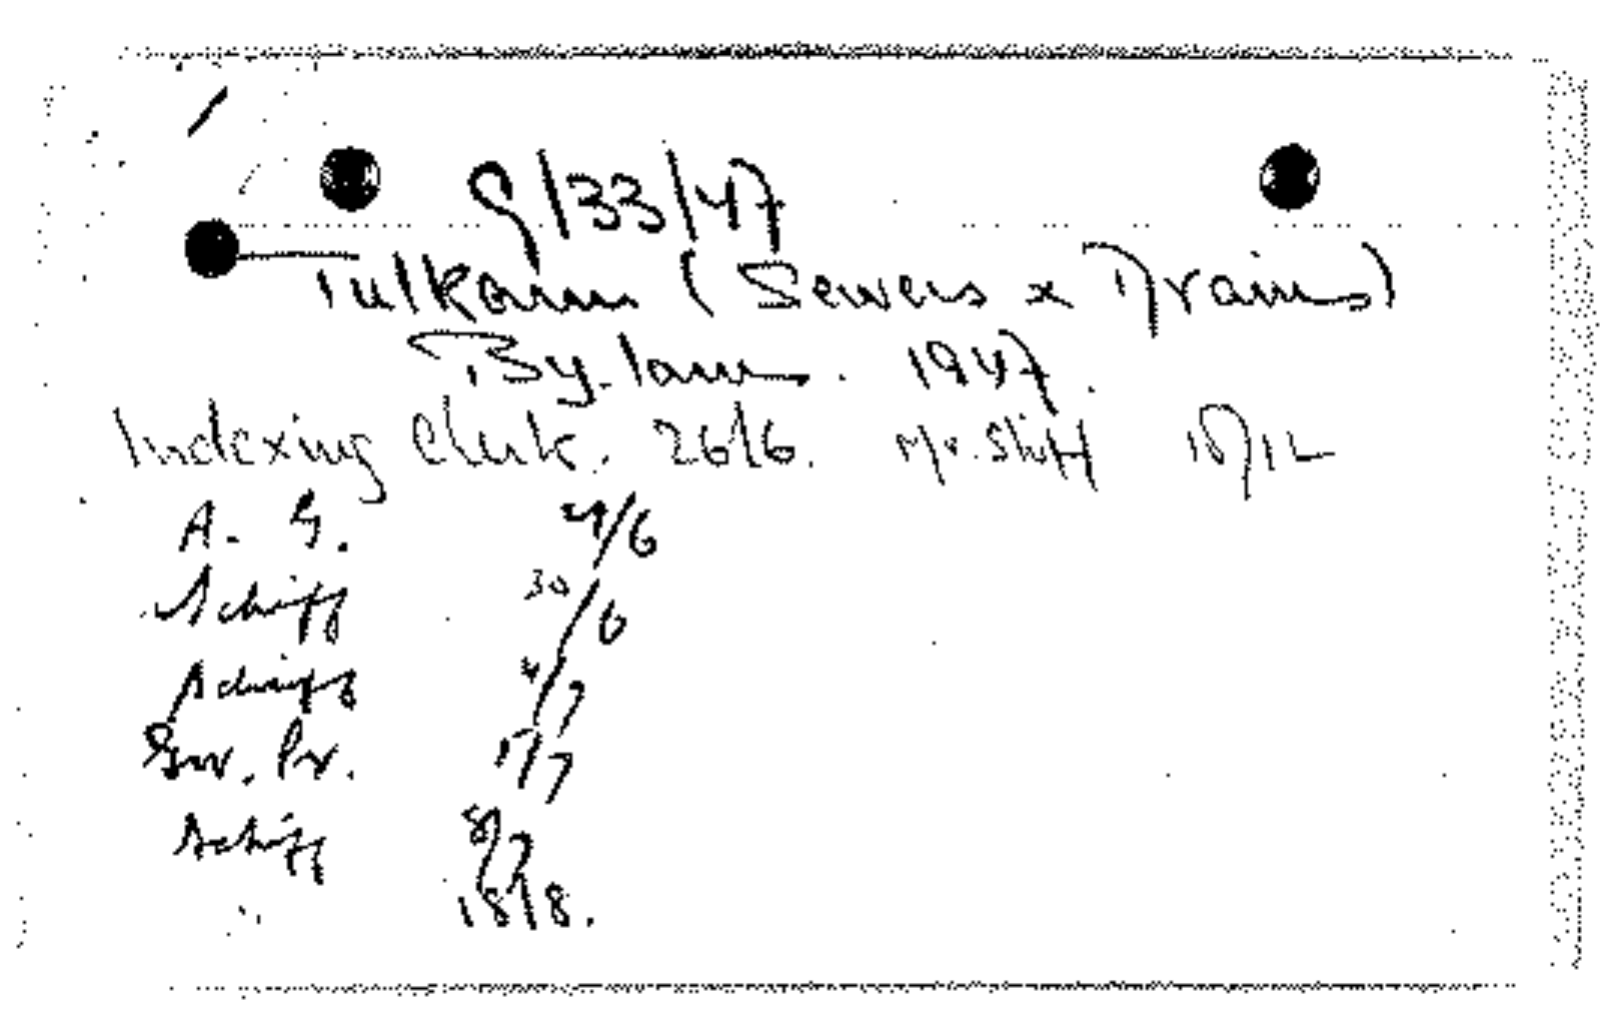 9/33/47
Tulkarm (Sewers & Drains)
By-laws. 1947.
Indexing Clerk. 26/6. Mr. Shiff 18/12
A. G. 27/6
Schiff 30/6
Schiff 4/7
Gov. Pr. 17/7
Schiff 8/7
" 18/8.